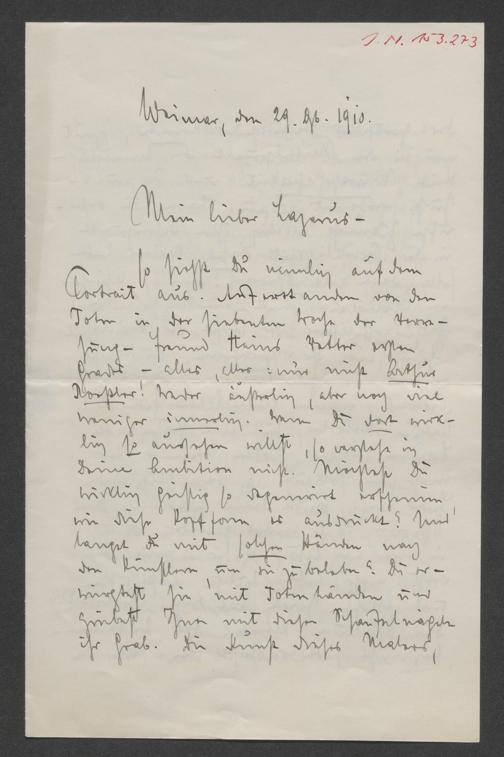 I. N. 153.273
Weimar, den 29. 1910.
Mein lieber Lazarus –
so siehst Du nämlich auf dem
Portrait aus. Auferstanden von den
Toten in der siebenten Woche der Verwe-
sung – Freund Heins Vetter ersten
Grades – alles, alles: nur nicht Arthur
Roessler! Weder äußerlich, aber noch viel
weniger innerlich. Wenn Du dort wirk-
lich so aussehen willst, so verstehe ich
Deine Ambition nicht. Möchtest Du
wirklich geistig so degeneriert erscheinen
wie diese Kopfform es ausdrückt? Und
langst Du mit solchen Händen nach
den Künstlern um sie zu beleben? Du er-
würgtest sie mit Totenhänden und
grübest Ihnen mit diesen Schaufelnägeln
ihr Grab. Die Kunst dieses Malers,